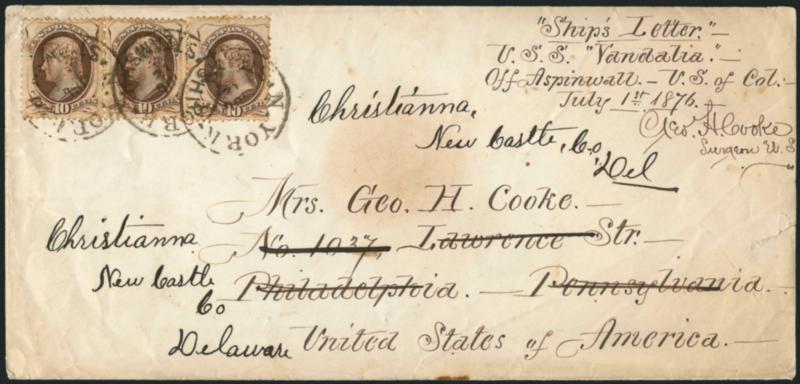 "Ship's Letter."—
U.S.S. "Vandalia."—
Off Aspinwall.— U.S. of Col.—
July 1st 1876.—
Geo. H. Cooke
Surgeon U.S.
Christiánna,
New Castle, Co,
Del
Mrs. Geo. H. Cooke.—
No. 1037, Lawrence Str.—
Philadelphia.— Pennsylvania.—
United States of America.—
Christianna
New Castle
Co
Delaware
10 10 10
YORK